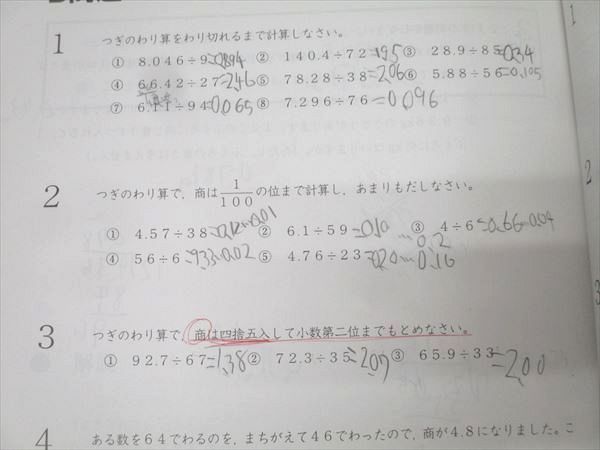 1 つぎのわり算をわり切れるまで計算しなさい。
① 8.046÷9=0.894 ② 140.4÷72=1.95 ③ 28.9÷85=0.34
④ 66.42÷27=2.46 ⑤ 78.28÷38=2.06 ⑥ 5.88÷56=0.105
⑦ 6.11÷94=0.065 ⑧ 7.296÷76=0.096
2 つぎのわり算で，商は1/100の位まで計算し，あまりもだしなさい。
① 4.57÷38=0.12…0.01 ② 6.1÷59=0.10…0.2 ③ 4÷6=0.66…0.04
④ 56÷6=9.33…0.02 ⑤ 4.76÷23=0.20…0.16
3 つぎのわり算で，商は四捨五入して小数第二位までもとめなさい。
① 92.7÷67=1.38 ② 72.3÷35=2.07 ③ 65.9÷33=2.00
4 ある数を64でわるのを，まちがえて46でわったので，商が4.8になりました。こ